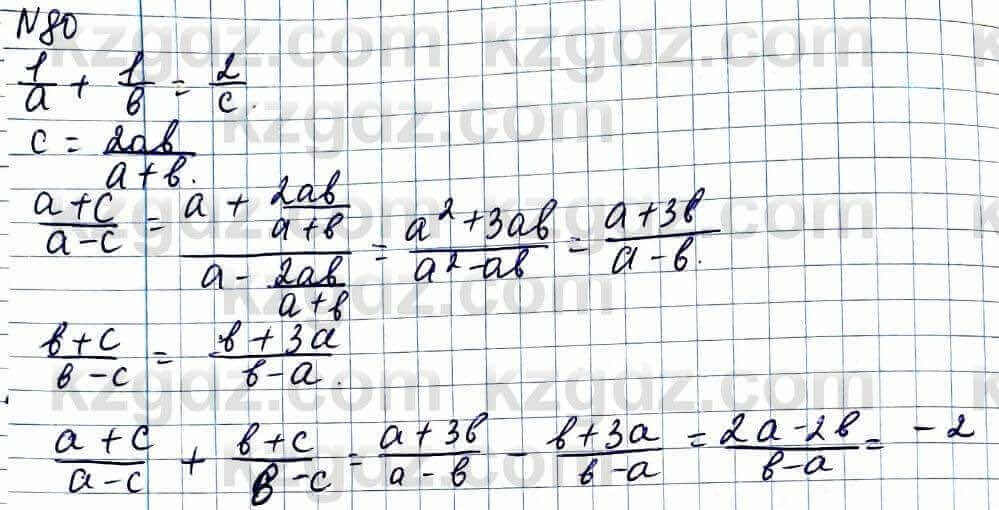 N80
1/a + 1/в = 2/c.
c = 2aв/(a+в).
(a+c)/(a-c) = (a + 2aв/(a+в))/(a - 2aв/(a+в)) = (a²+3aв)/(a²-aв) = (a+3в)/(a-в).
(в+c)/(в-c) = (в+3a)/(в-a).
(a+c)/(a-c) + (в+c)/(в-c) = (a+3в)/(a-в) - (в+3a)/(в-a) = (2a-2в)/(в-a) = -2
kzgdz.com
kzgdz.com
kzgdz.com
kzgdz.com
kzgdz.com
kzgdz.com
kzgdz.com
kzgdz.com